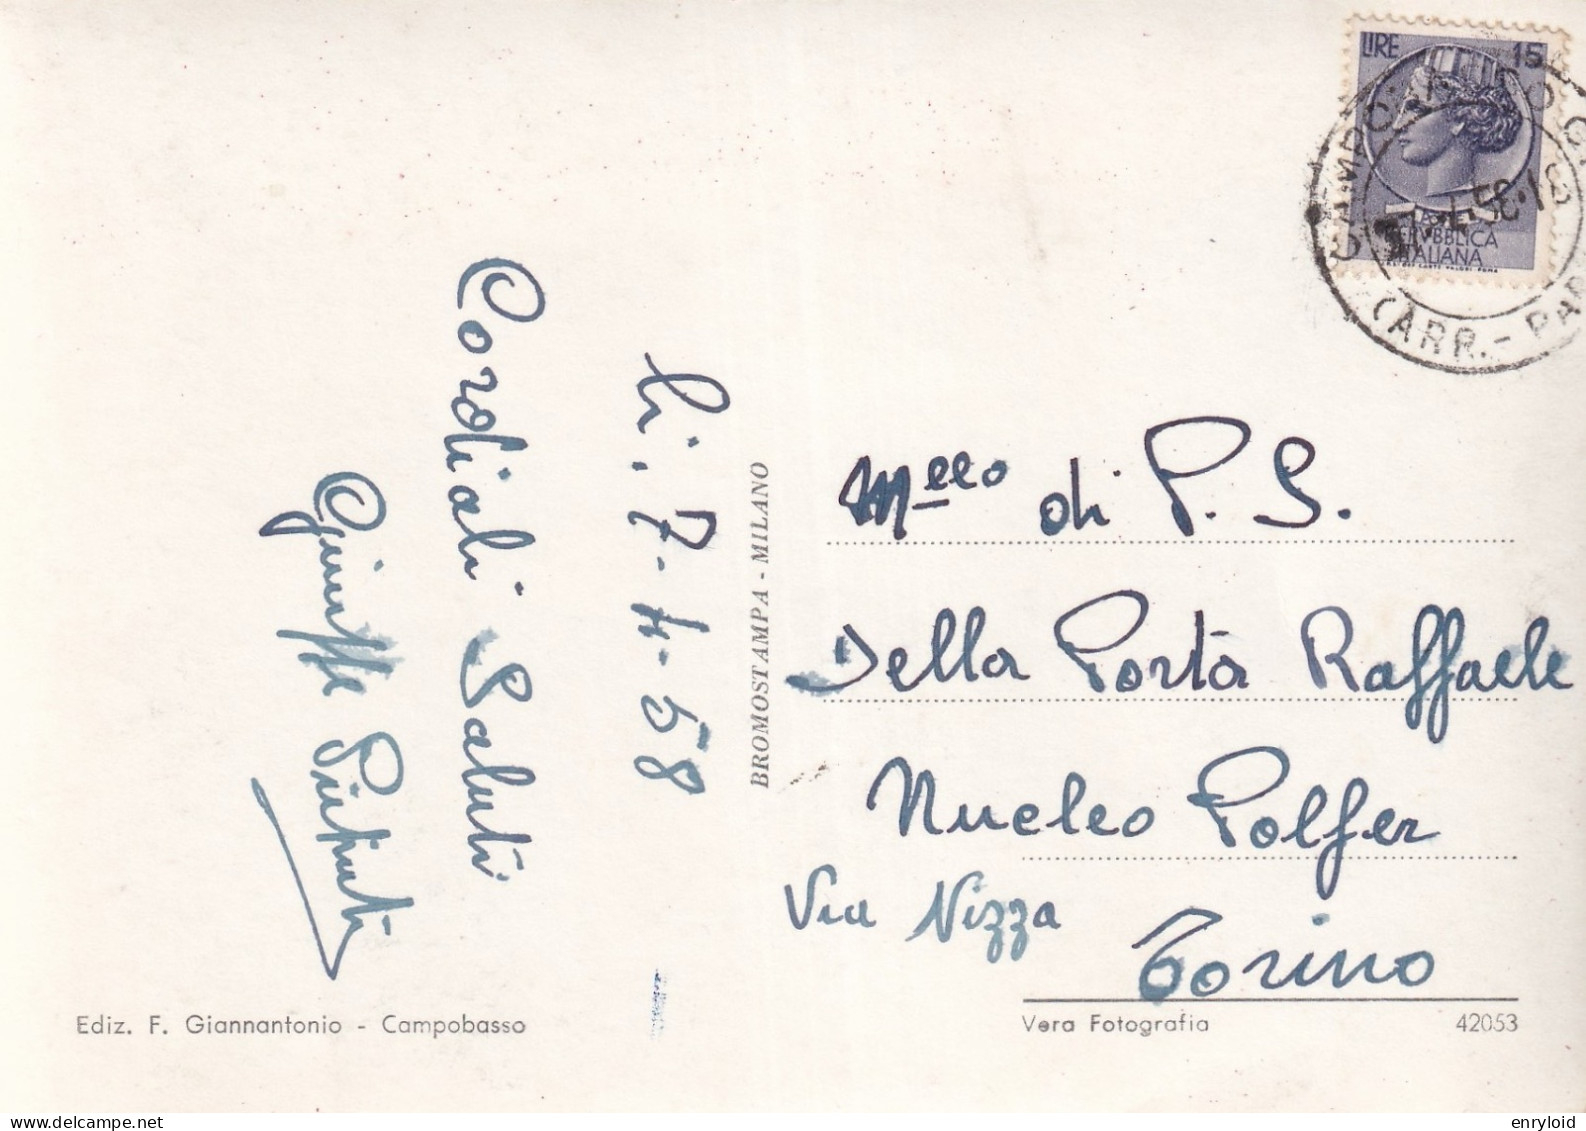 LIRE 15
REPVBBLICA
ITALIANA
(ARR.-PAR
Cordiali Saluti
Giuseppe
li, 7-4-58
BROMOSTAMPA - MILANO
Mello di P. S.
Della Porta Raffaele
Nucleo Polfer
Via Nizza
Torino
Ediz. F. Giannantonio - Campobasso
Vera Fotografia
42053
enryloid